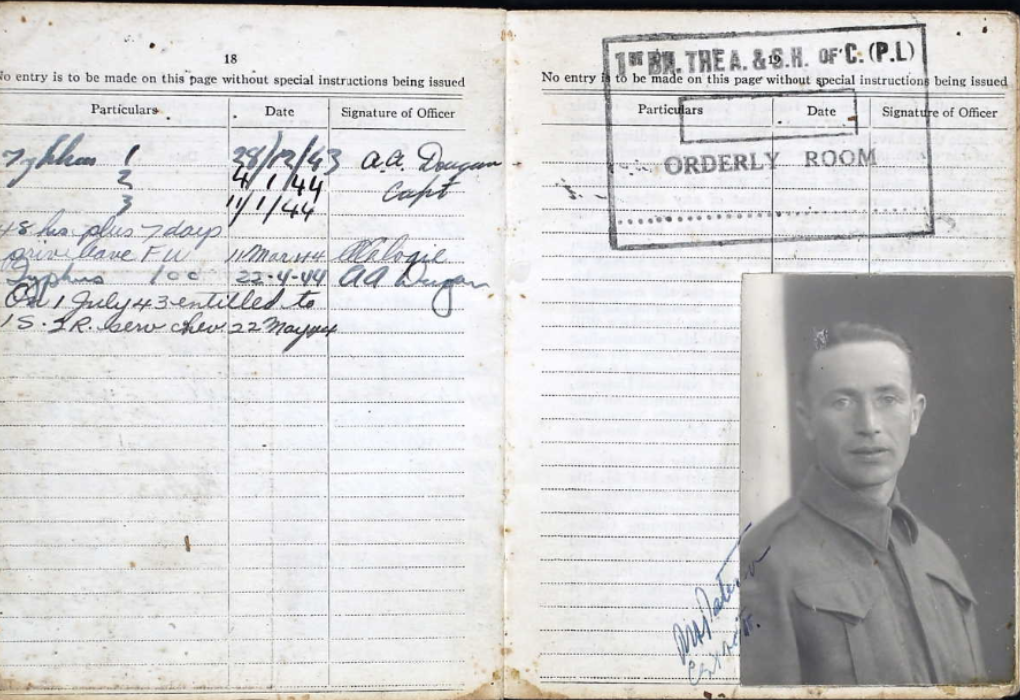 18
No entry is to be made on this page without special instructions being issued
Particulars Date Signature of Officer
1 28/12/43 A.A. Dougan
2 4/1/44 Capt
3 11/1/44
48 hrs plus 7 days
priv leave FW 11 Mar 44
Typhus 1cc 22-4-44 AA Dougan
On 1 July 43 entitled to
1 S. 2R. serv chev 22 May 44
1st BN. THE A. & S.H. OF C. (P.L)
19
No entry is to be made on this page without special instructions being issued
Particulars Date Signature of Officer
ORDERLY ROOM